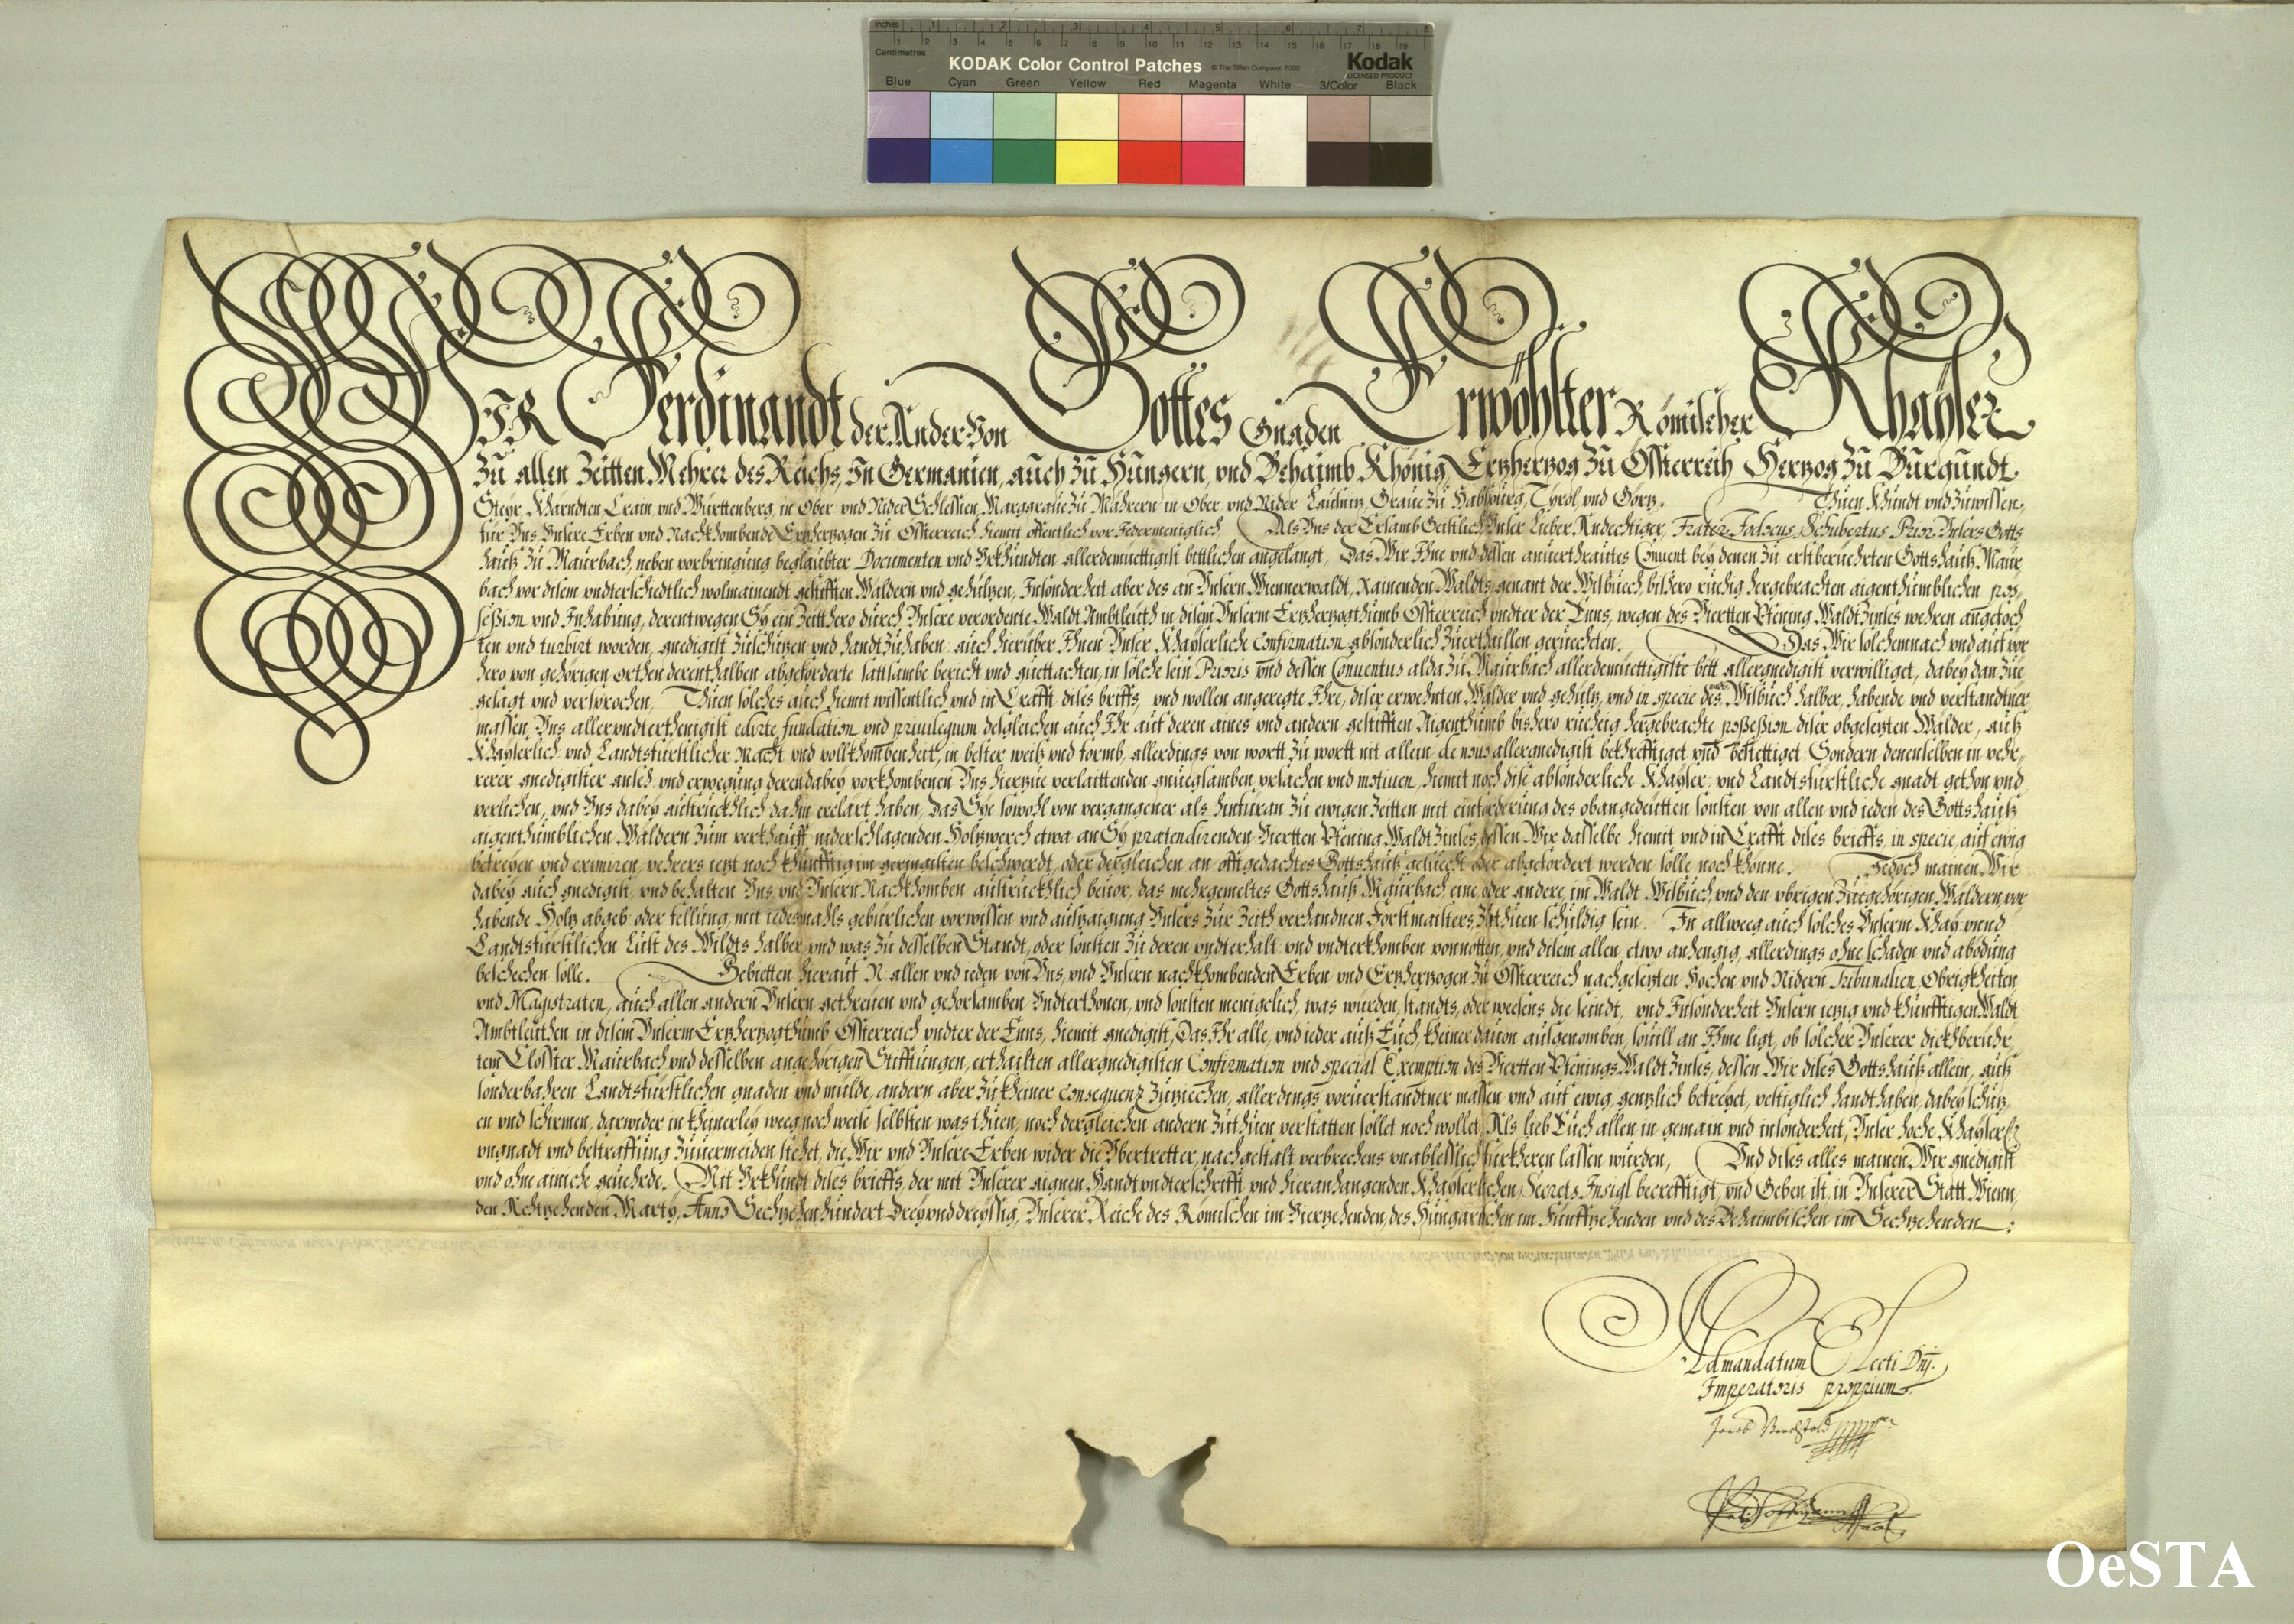 Inches 1 2 3 4 5 6 7 8
Centimetres 1 2 3 4 5 6 7 8 9 10 11 12 13 14 15 16 17 18 19
KODAK Color Control Patches © The Tiffen Company, 2000 Kodak
LICENSED PRODUCT
Blue Cyan Green Yellow Red Magenta White 3/Color Black
WIR Ferdinandt der Ander Von Gottes Gnaden Erwöhlter Römischer Khayser
Zu allen Zeitten Mehrer des Reichs, In Germanien, auch zu Hungern, vnd Behaimb Khönig, Ertzhertzog zu Össterreich Hertzog zu Burgundt
Steyr, Khärndten, Crain, vnd Württenberg, in Ober vnd Nider Schlesien, Marggraue zu Mährern in Ober vnd Nider Lausnitz, Graue zu Habspurg, Tyrol, vnd Görtz. Thuen khundt vnd zuwissen,
für Vns, Vnsere Erben vnd Nachkhombende Ertzhertzogen zu Össterreich hiemit öffentlich vor Jedermeniglich Als Vns der Ersamb Geistlich Vnser Lieber Andechtiger, Frater Schubertus Prior Vnsers Gotts
hauss zu Maurbach, neben vorbringung beglaubter Documenten vnd Vrkhundten allerdemuettigist bittlichen angelangt, Das Wir Ihne vnd dessen anuerthrautes Conuent bey denen zu erstberuehrten Gottshauss Maur
bach vor disem vndterschiedtlich wolmainendt gestifften Wäldern vnd gehültzen, Insonderheit aber des an Vnsern Wiennerwaldt, Rainenden Waldts, genant der Wilbuech, bishero ruehig hergebrachten aigenthumblichen pos,
session vnd Inhabung, derentwegen Sy ein Zeitthero durch Vnsere verordente Waldt Ambtleüth in disem Vnserm Ertzhertzogthumb Össterreich vndter der Enns, wegen des Viertten Pfening Waldt Zinses wehren angefoch
ten vnd turbirt worden, gnedigist zuschutzen vnd handtzuhaben, auch hierüber Ihnen Vnser Khayserliche Confirmation absonderlich zuerthaillen geruecheten. Das Wir solchemnach vnd auf vor
hero von gehörigen orthen derenthalben abgeforderte sattsambe bericht vnd guettachten, in solche sein Prioris vnd dessen Conuentus alda zu Maurbach allerdemüettigiste bitt allergnedigist verwilliget, dabey dan zue
gesagt vnd versprochen, Thuen solches auch hiemit wissentlich vnd in Crafft dises briffs, vnd wollen angeregte Ihre, diser erwehnten Wälder vnd gehültz, vnd in specie des Wilbuech halber, habende vnd verstandtner
massen, Vns allervndterthenigist edirte fundation vnd priuilegium desgleichen auch Ihr auf deren aines vnd andern gestifften Aigenthumb bishero ruehig hergebrachte possession diser obgesetzten Wälder, auss
Khayserlich vnd Landtsfürstlicher Macht vnd vollkhombenheit, in bester weiss vnd formb, allerdings von wortt zu wortt nit allein de nouo allergnedigist bekhrefftiget vnd bestettiget Sondern denenselben in mehr,
rerer gnedigister ansech vnd erwegung deren dabey vorkhombenen Vns hierzue verlaittenden gnuegsamben vrsachen vnd motiuen, hiemit noch dise absonderliche Khayser vnd Landtsfürstliche gnadt gethon vnd
verlichen, vnd Vns dabey austruckhlich dahin erclärt haben, Das Sye sowohl von vergangener als hinfüran zu ewigen Zeitten mit einforderung des obangedeutten sonsten von allen vnd ieden des Gottshauss
aigenthumblichen Wäldern zum verkhauff niderschlagenden Holtzwerch etwa an Sy prætendirenden Viertten Pfening Waldt Zinses, dessen Wir dasselbe hiemit vnd in Crafft dises brieffs, in specie, auf ewig
befreyen vnd eximiren, vehrers ietzt noch khünfftig im geringisten beschwerdt, oder dergleichen an offtgedachtes Gottshauss gesuecht oder abgefordert werden solle noch khönne. Jedoch mainen Wir
dabey auch gnedigist, vnd behalten Vns, vnd Vnsern Nachkhomben austruckhlich beuor, das mehrgemeltes Gottshauss Maurbach eine oder andere, im Waldt Wilbuch, vnd den vbrigen Zuegehörigen Wäldern, vor
habende Holtz abgeb oder fellung, mit iedesmahls gebürlichen vorwissen vnd ausszaigung Vnsers zur Zeith verhandnen Forstmaisters, zuthuen schuldig sein. In allweeg auch solches Vnserm Khay: vnnd
Landtsfürstlichen Lust des Wildts halber, vnd was zu desselben Standt, oder sonsten zu deren vndterhalt vnd vndterkhomben vonnötten, vnd disem allen etwo anhengig, allerdings ohne schaden vnd abödung
beschechen solle. Gebietten hierauf N. allen vnd ieden von Vns, vnd Vnsern nachkhombenden Erben vnd Ertzhertzogen zu Össterreich nachgesetzten Hochen vnd Nidern Tribunalien, Obrigkheiten
vnd Magistraten, auch allen andern Vnsern getreuen vnd gehorsamben Vndterthonen, vnd sonsten menigclich, was würden, standts, oder weesens die seindt, vnd Insonderheit Vnsern ietzig vnd khünfftigen Waldt
Ambtleuthen in disem Vnserm Ertzhertzogthumb Össterreich vndter der Enns, hiemit gnedigist, Das Ihr alle, vnd ieder auss Euch, kheiner dauon aussgenomben, souill an Ihme ligt, ob solcher Vnserer dickhberühr,
tem Closster Maurbach vnd desselben angehörigen Stifftungen, erthailten allergnedigisten Confirmation vnd special Exemption des Viertten Pfenings Waldt Zinses, dessen Wir dises Gottshauss allein, auss
sonderbahren Landtsfürstlichen gnaden vnd mulde, andern aber zu kheiner Consequenz zuziechen, allerdings voruerstandtner massen vnd auf ewig, gentzlich befreyet, vestiglich handthaben, dabey schütz,
en vnd schirmen, darwider in kheinerley weeg noch weise selbsten was thuen, noch dergleichen andern zuthuen verstatten sollet noch wollet, Als lieb Euch allen in gemain vnd insonderheit, Vnser hoche Khayserl:
vngnadt vnd bestraffung zuuermeiden stehet, die Wir vnd Vnsere Erben wider die Vbertretter, nach gestalt verbrechens vnablesslich fürkheren lassen würden, Vnd dises alles mainen Wir gnedigist
vnd ohne ainiche geuehrde. Mit Vrkhundt dises brieffs, der mit Vnserer aignen Handt vndterschrifft vnd hieranhangenden Khayserlichen Secrets Insigl becrefftigt, vnd Geben ist, in Vnserer Statt Wienn,
den Achtzehenden Marty, Anno Sechzehenhundert Dreyvnddreyssig, Vnserer Reiche des Römischen im Viertzehenden, des Hungarischen im Fünffzehenden vnd des Behaimbischen im Sechzehenden:
Ad mandatum Electi Dnj.
Imperatoris proprium
Jacob
OeSTA